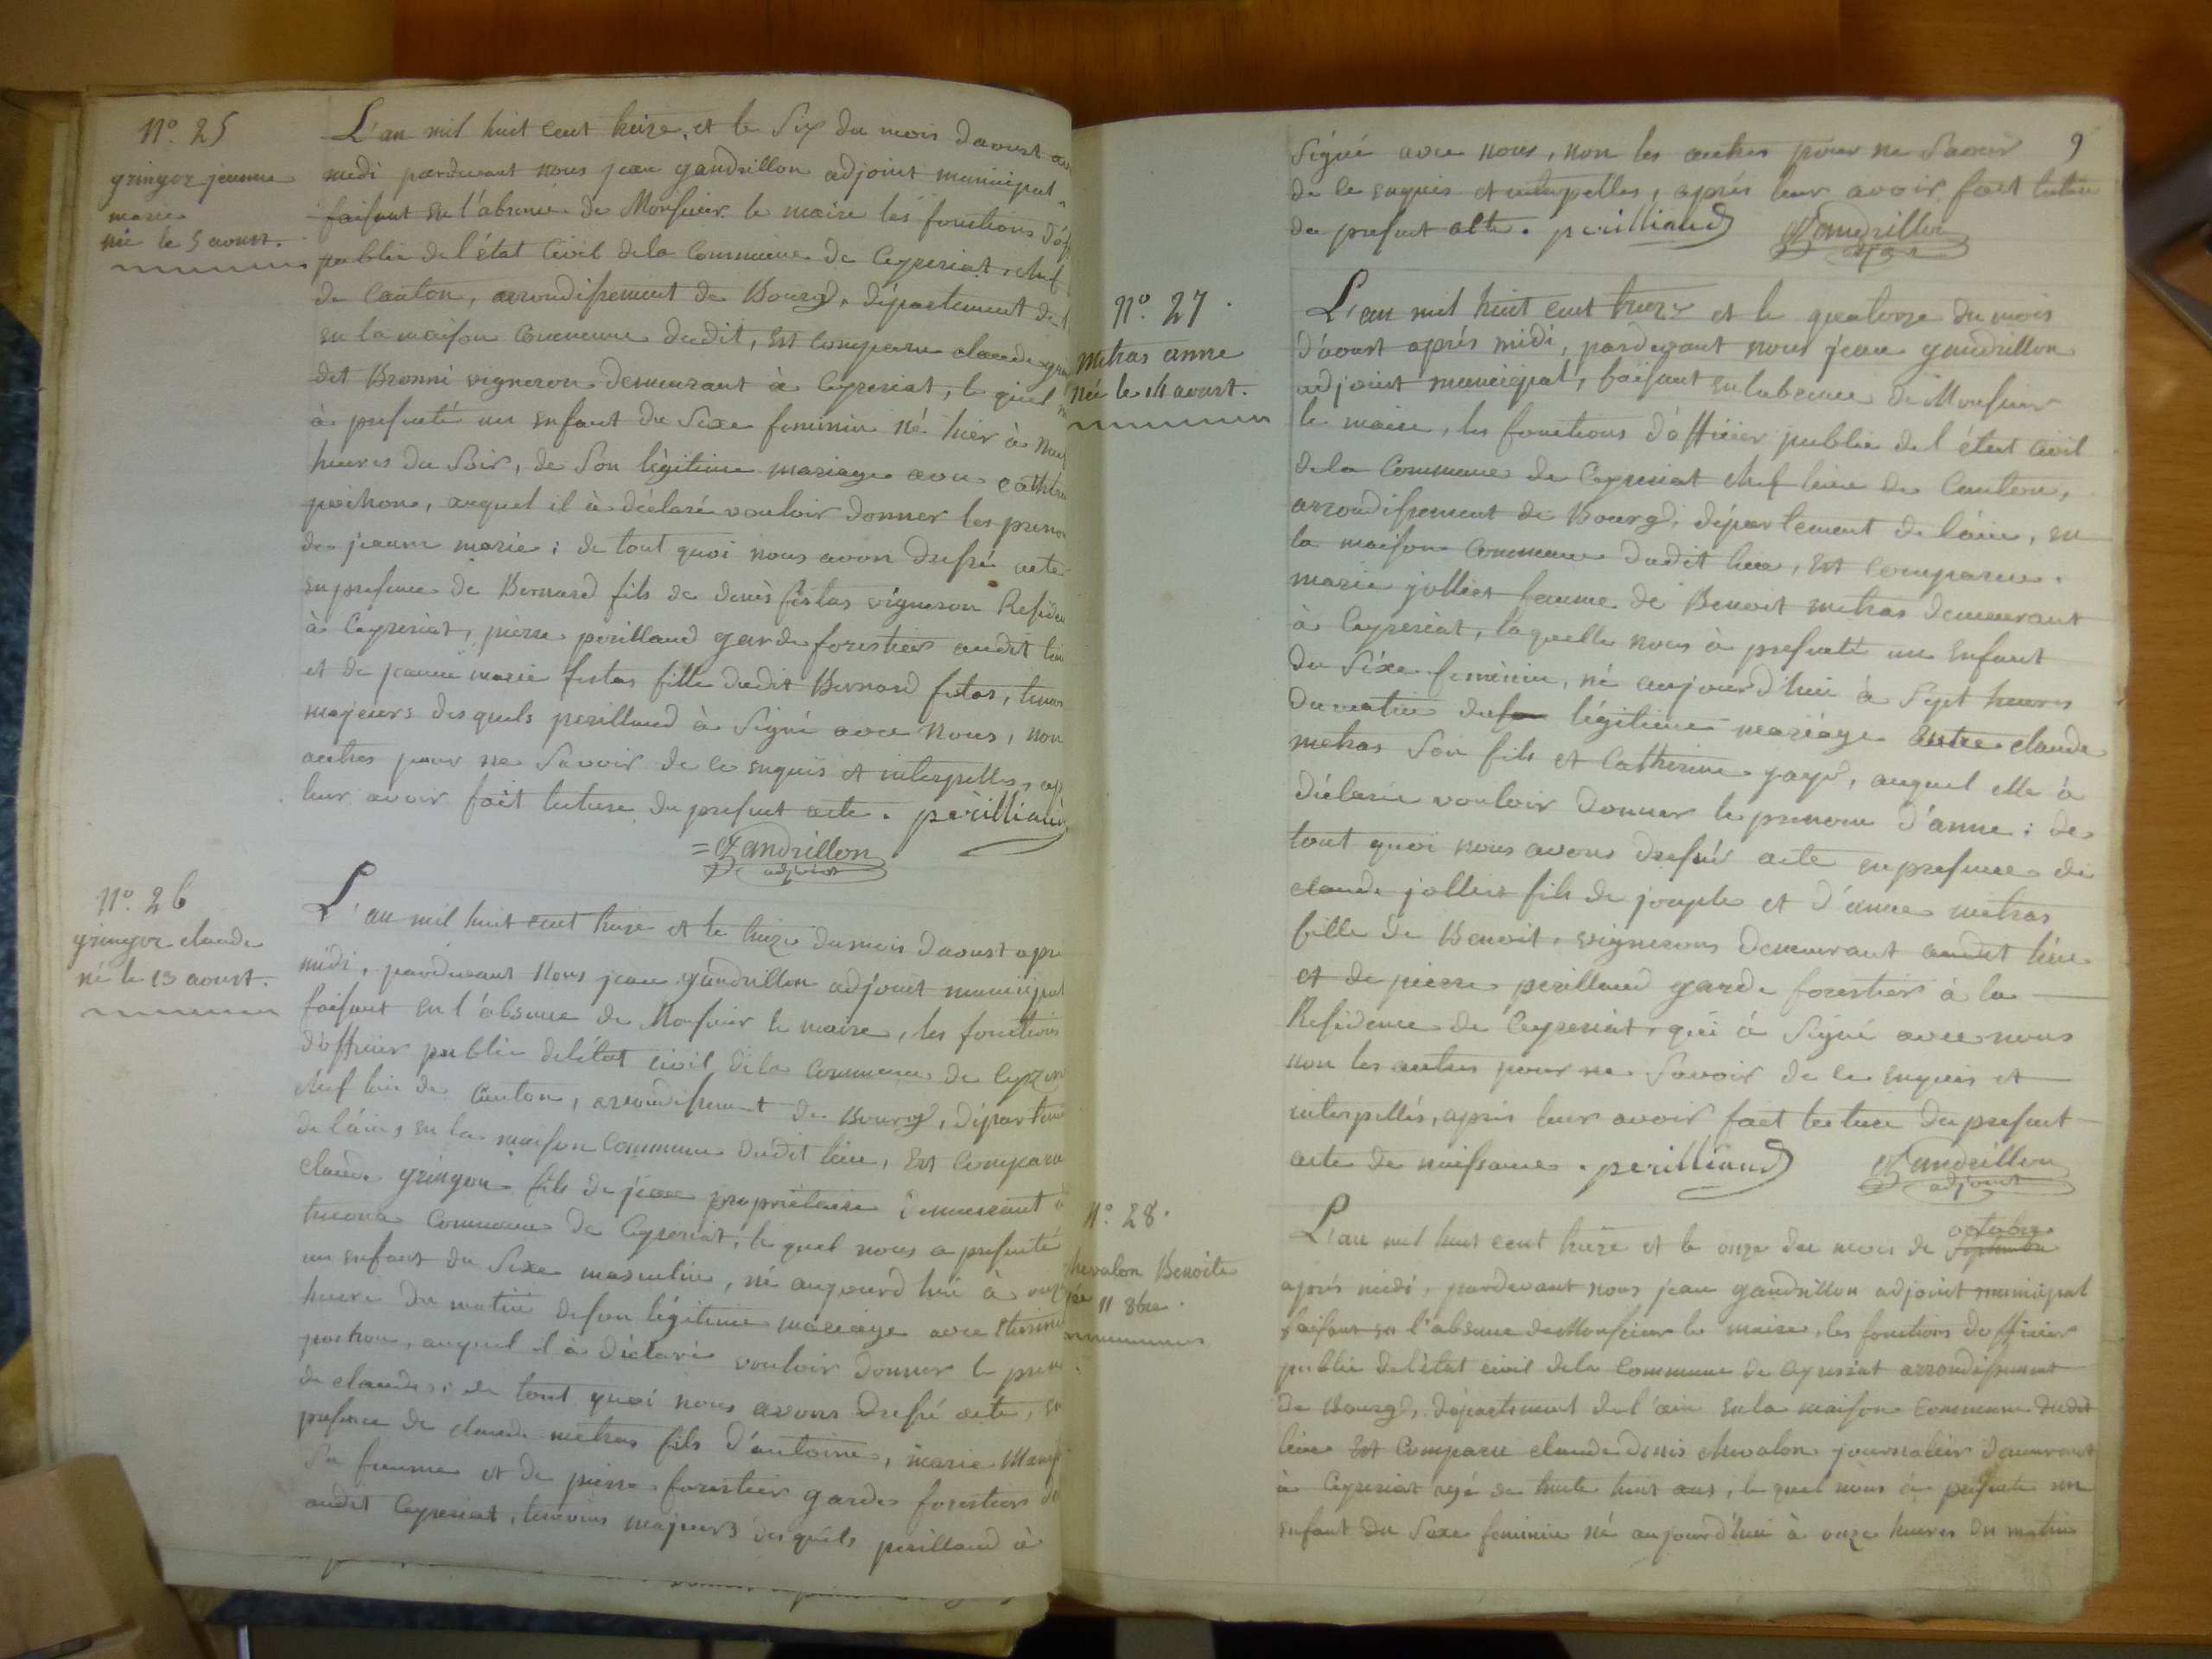 N.o 25
gringoz jeanne
marie
né le 5 aoust.
L'an mil huit cent treize, et le six du mois daoust
midi pardevant nous jean gandrillon adjoint municipal
faisant en l'absence de Monsieur le maire les fonctions
public de l'état Civil dela Commune de Ceyzeriat, chef
de Canton, arrondissement de Bourg, département de
en la maison Commune dudit, Est Comparu claude
dit Bronni vigneron demeurant à Ceyzeriat, le quel
à presenté un enfant du Sexe feminin né hier à
heures du Soir, de Son légitime mariage avec
pochon, auquel il à déclaré vouloir donner les
de jeanne marie; de tout quoi nous avon dressé acte
en presence de Bernard fils de denis festas vigneron
à Ceyzeriat, pierre perillaud garde forestier audit
et de jeanne marie festas fille dudit Bernard festas,
majeurs des quels perillaud à Signé avec Nous, non
autres pour ne Savoir de ce enquis et interpellés,
leur avoir fait lecture du present acte. perilliaud
=Gandrillon
adjoint
N.o 26
gringoz claude
né le 13 aoust.
L'an mil huit cent treize et le treize du mois daoust
midi, pardevant Nous jean gandrillon adjoint municipal
faisant en l'absence de Monsieur le maire, les fonctions
d'officier public delétat civil dela Commune de
chef lieu de Canton, arrondissement de Bourg,
de l'ain, en la maison Commune dudit lieu, Est Comparu
claude gringoz fils de jean propriétaire demeurant à
Commune de Ceyzeriat, le quel nous a presenté
un enfant du Sexe masculin, né aujourd'hui à
heure du matin deson légitime mariage avec
pochon, auquel il à déclaré vouloir donner le
de claude; de tout quoi nous avons dressé acte, en
presence de claude metras fils d'antoine, marie
Sa femme et de pierre forestier garde forestier
audit Ceyzeriat, temoins majeurs desquels perillaud à
9
Signé avec nous, non les autres pour ne Savoir
de ce enquis et interpelles, aprés leur avoir fait lecture
du present acte. perilliaud Gandrillon
N.o 27.
metras anne
née le 14 aoust.
L'an mil huit cent treize et le quatorze du mois
d'aoust aprés midi, pardevant nous jean gandrillon
adjoint municipal, faisant en labsence de Monsieur
le maire, les fonctions d'officier public de l'état civil
dela Commune de Ceyzeriat chef lieu de Canton,
arrondissement de Bourg, département de láin, en
la maison Commune dudit lieu, Est Comparue.
marie jolliet femme de Benoit metras demeurant
à Ceyzeriat, laquelle nous à presenté un Enfant
du Séxe feminin, né aujourd'hui à Sept heures
dumatin du légitime mariage Entre claude
metras Son fils et Catherine, auquel elle à
déclarée vouloir donner le prenom d'anne; de
tout quoi nous avons dressé acte en presence de
claude jolliet fils de joseph et d'anne metras
fille de Benoit, vignerons demeurant audit lieu
et de pierre perillaud garde forestier à la
Residence de Ceyzeriat, qui à Signé avec nous
non les autres pour ne Savoir de ce enquis et
interpellés, aprés leur avoir fait lecture du present
acte de naissance. perilliaud Gandrillon
adjoint
N.o 28.
chevalon Benoite
née 11 8bre.
L'an mil huit cent treize et le onze du mois de septembre octobre
aprés midi, pardevant nous jean gandrillon adjoint municipal
faisant en l'absence de Monsieur le maire, les fonctions dofficier
public delétat civil dela Commune de Ceyzeriat arrondissement
de Bourg, département de l'ain en la maison commune dudit
lieu Est Comparu claude denis chevalon journalier demeurant
à Ceyzeriat agé de trente huit ans, le quel nous à presenté un
enfant du Sexe feminin né aujourd'hui à onze heures du matin